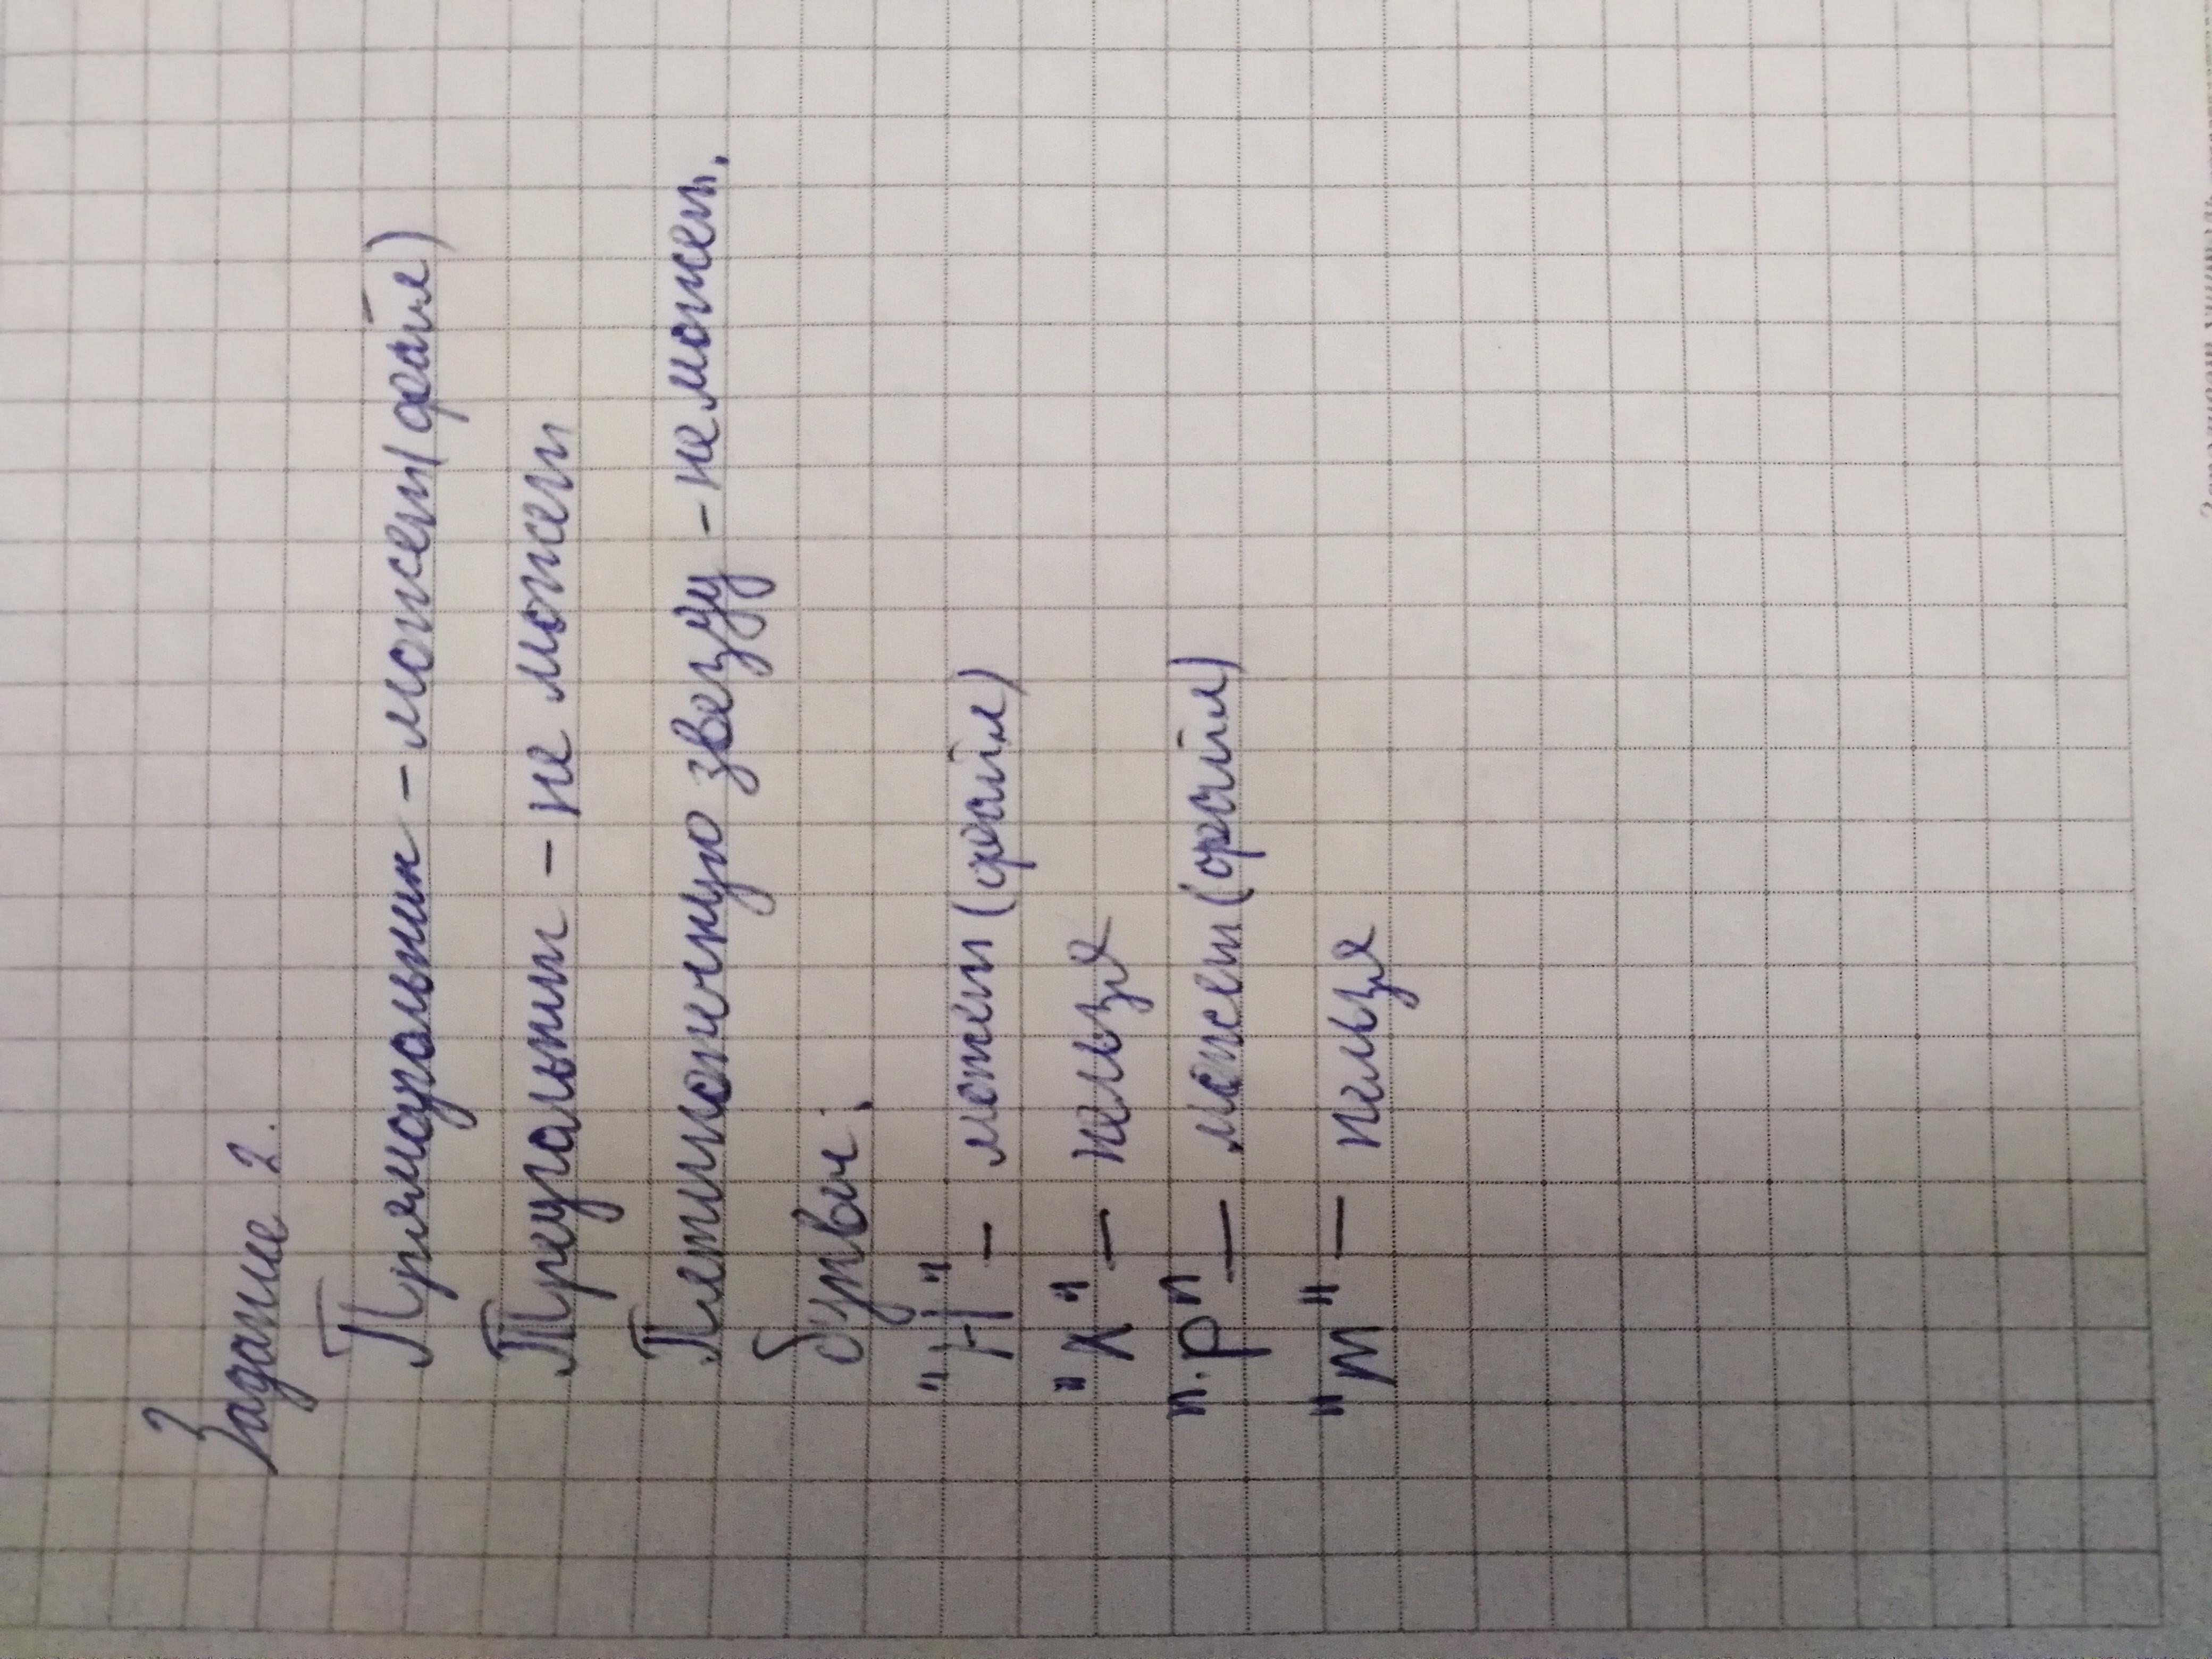 Задание 2.
Прямоугольник - может (файл)
Треугольник - не может
Пятиконечную звезду - не может.
Буквы:
"Н" - может (файл)
"Л" - нельзя
"Р" - может (файл)
"М" - нельзя